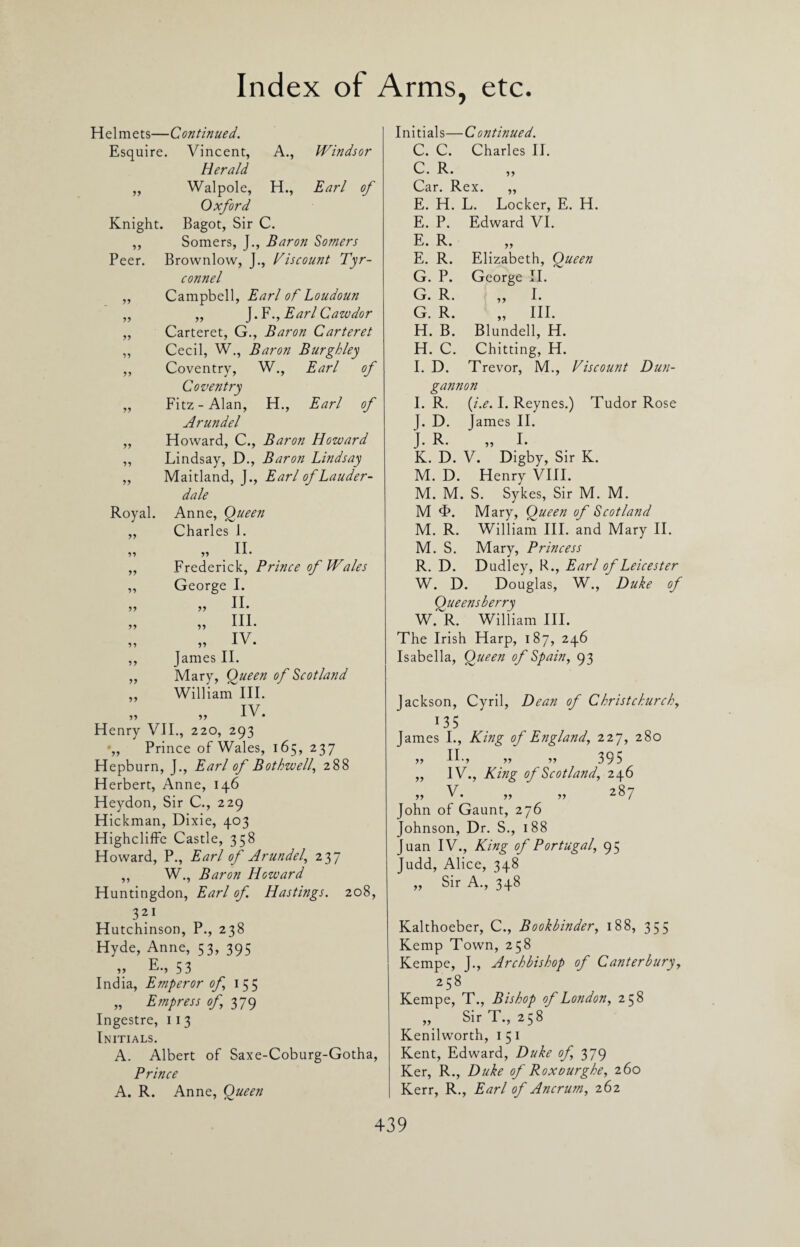 Index of Arms, etc.
Helmets—Continued.
Esquire. Vincent, A., Windsor
Herald
„ Walpole, H., Earl of
Oxford
Knight. Bagot, Sir C.
„ Somers, J., Baron Somers
Peer. Brownlow, J., Viscount Tyr-
connel
„ Campbell, Earl of Loudoun
„ „ J. F., Earl Cawdor
„ Carteret, G., Baron Carteret
„ Cecil, W., Baron Burghley
„ Coventry, W., Earl of
Coventry
„ Fitz-Alan, H., Earl of
Arundel
„ Howard, C., Baron Howard
„ Lindsay, D., Baron Lindsay
„ Maitland, J., Earl of Lauder-
dale
Royal. Anne, Queen
„ Charles I.
„ „ II.
„ Frederick, Prince of Wales
„ George I.
„ „ II.
„ „ III.
„ „ IV.
„ James II.
„ Mary, Queen of Scotland
„ William III.
„ „ IV.
Henry VII., 220, 293
„ Prince of Wales, 165, 237
Hepburn, J., Earl of Bothwell, 288
Herbert, Anne, 146
Heydon, Sir C., 229
Hickman, Dixie, 403
Highcliffe Castle, 358
Howard, P., Earl of Arundel, 237
„ W., Baron Howard
Huntingdon, Earl of. Hastings. 208,
321
Hutchinson, P., 238
Hyde, Anne, 53, 395
„ E., 53
India, Emperor of, 155
„ Empress of, 379
Ingestre, 113
Initials.
A. Albert of Saxe-Coburg-Gotha,
Prince
A. R. Anne, Queen
Initials—Continued.
C. C. Charles II.
C. R. „
Car. Rex. „
E. H. L. Locker, E. H.
E. P. Edward VI.
E. R. „
E. R. Elizabeth, Queen
G. P. George II.
G. R. „ I.
G. R. „ III.
H. B. Blundell, H.
H. C. Chitting, H.
I. D. Trevor, M., Viscount Dun-
gannon
I. R. (i.e. I. Reynes.) Tudor Rose
J. D. James II.
J. R. „ I.
K. D. V. Digby, Sir K.
M. D. Henry VIII.
M. M. S. Sykes, Sir M. M.
M Φ. Mary, Queen of Scotland
M. R. William III. and Mary II.
M. S. Mary, Princess
R. D. Dudley, R., Earl of Leicester
W. D. Douglas, W., Duke of
Queensberry
W. R. William III.
The Irish Harp, 187, 246
Isabella, Queen of Spain, 93
Jackson, Cyril, Dean of Christchurch,
135
James I., King of England, 227, 280
„ II., „ „ 395
„ IV., King of Scotland, 246
„ V. „ „ 287
John of Gaunt, 276
Johnson, Dr. S., 188
Juan IV., King of Portugal, 95
Judd, Alice, 348
„ Sir A., 348
Kalthoeber, C., Bookbinder, 188, 355
Kemp Town, 258
Kempe, J., Archbishop of Canterbury,
258
Kempe, T., Bishop of London, 258
„ Sir T., 258
Kenilworth, 151
Kent, Edward, Duke of, 379
Ker, R., Duke of Roxburghe, 260
Kerr, R., Earl of Ancrum, 262
439